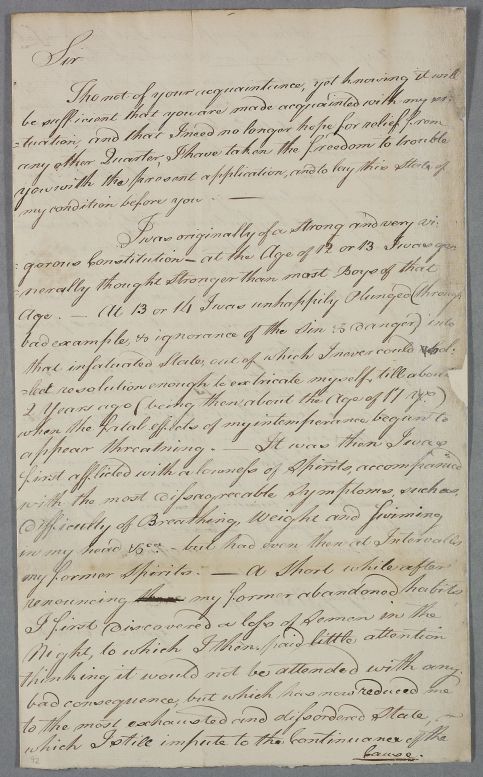 Sir
Tho not of your acquaintance, yet knowing it will
be sufficient that you are made acquainted with my si-
-tuation, and that I need no longer hope for relief from
any other Quarter, I have taken the freedom to trouble
you with the present application, and to lay this State of
my condition before you. —
I was originally of a strong and very vi-
-gorous Constitution — at the Age of 12 or 13 I was gen
-nerally thought stronger than most Boys of that
Age. — At 13 or 14 I was unhappily plunged (through
bad example, & ignorance of the Sin & danger) into
that infatuated State, out of which I never could col-
-lect resolution enough to extricate myself, till about
2 Years ago (being then about the Age of 17 yrs)
when the fatal effects of my intemperance began to
appear threatning. — It was then I was
first afflicted with a lowness of Spirits, accompanied
with the most disagreeable Symptoms, such as,
Difficulty of Breathing, Weight and Swiming
in my head &ca — but had even then at Intervals
my former Spirits. — A Short while after
renouncing my former abandoned habits
I first discovered a loss of Semen in the
Night, to which I then paid little attention
thinking it would not be attended with any
bad consequence, but which has now reduced me
to the most exhausted and dissordered State, —
which I still impute to the Continuance of the
Cause.
92